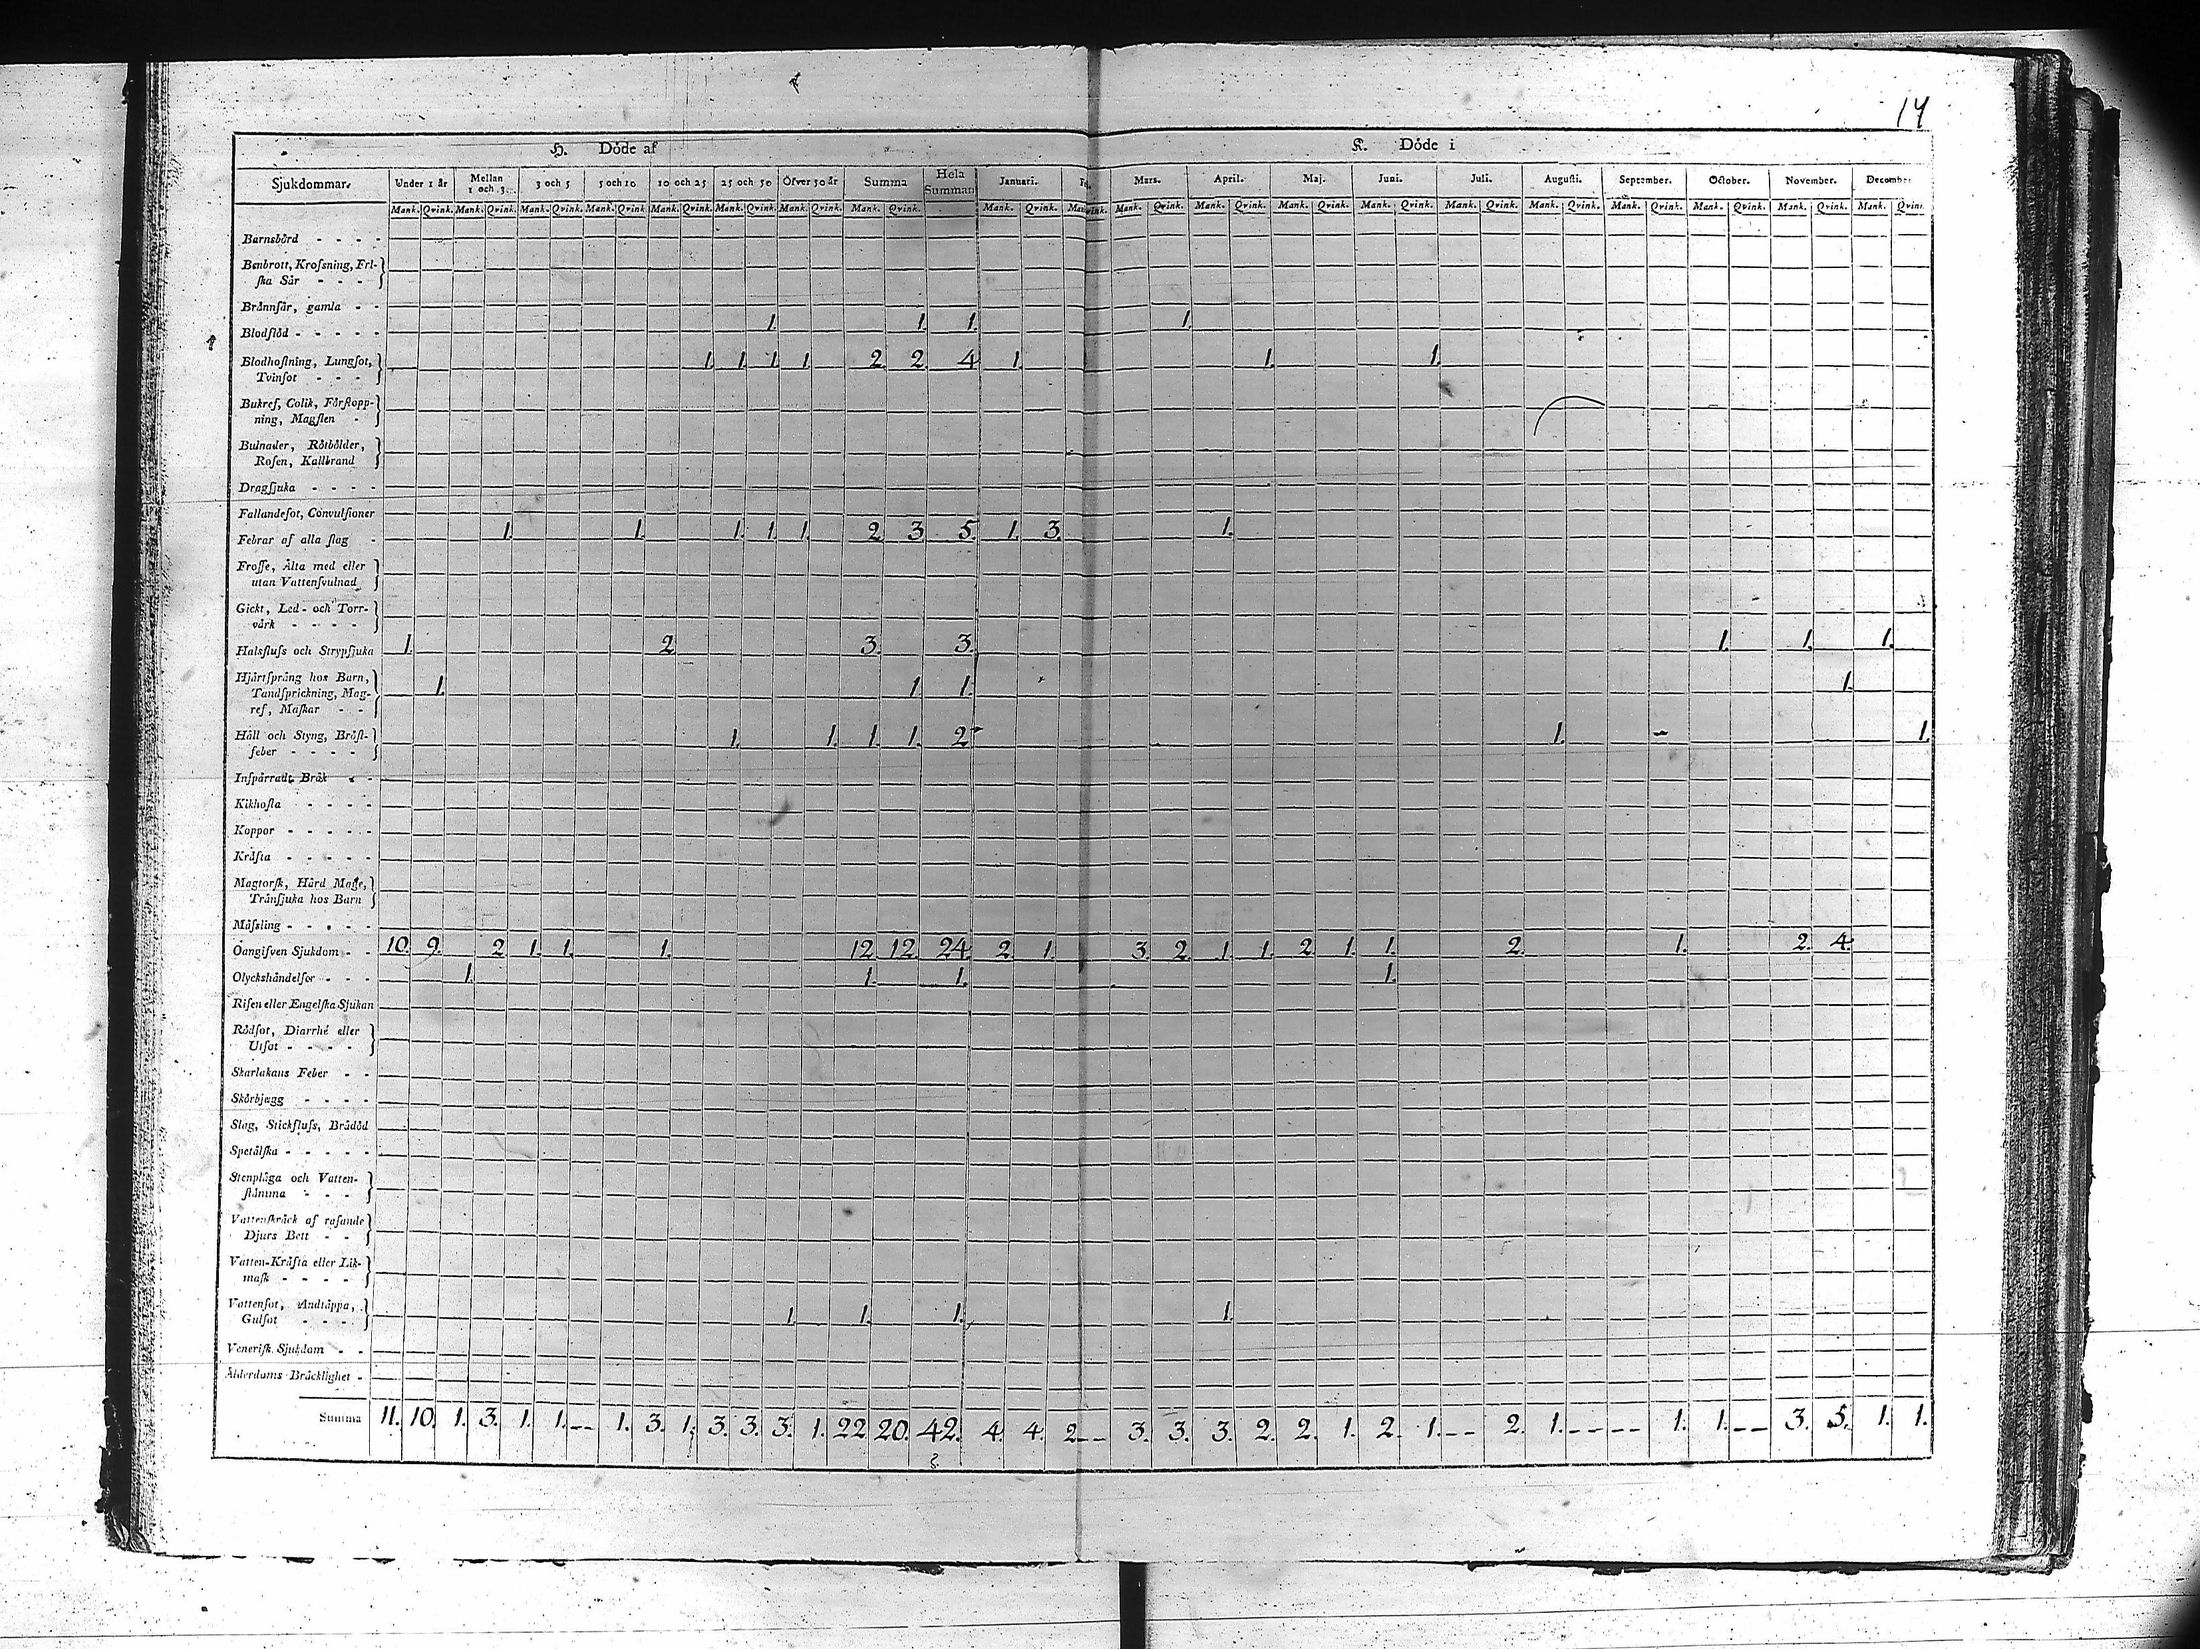 14
H. Döde af K. Döde i
Sjukdommar. Under 1 år Mellan 1 och 3. 3 och 5 5 och 10 10 och 25 25 och 50 Öfver 50 år Summa Hela Summan Januari. Mars. April. Maj. Juni. Juli. Augusti. September. October. November. Decemb.
Mank. Qvink. Mank. Qvink. Mank. Qvink. Mank. Qvink. Mank. Qvink. Mank. Qvink. Mank. Qvink. Mank. Qvink. Mank. Qvink. Mank. Qvink. Mank. Qvink. Mank. Qvink. Mank. Qvink. Mank. Qvink. Mank. Qvink. Mank. Qvink. Mank. Qvink. Mank. Qvink. Mank. Qvink. Mank. Qvink.
Barnsbörd - - - -
Benbrott, Krofsning, Frl-
ska Sår - - -
Brännsår, gamla - -
Blodflöd - - - - - 1. 1. 1. 1.
Blodhostning, Lungsot,
Tvinsot - - - 1. 1. 1. 1. 2. 2. 4. 1. 1. 1.
Bukref, Colik, Förstopp-
ning, Magsten -
Bulnader, Rötbölder,
Rosen, Kallbrand
Dragsjuka - - - -
Fallandesot, Convulsioner
Febrar af alla slag - 1. 1. 1. 1. 1. 2. 3. 5. 1. 3. 1.
Frosse, Älta med eller
utan Vattensvulnad
Gickt, Led- och Torr-
värk - - - -
Halsflufs och Strypsjuka 1. 2. 3. 3. 1. 1. 1.
Hjärtsprång hos Barn,
Tandsprickning, Mag-
ref, Maskar - - 1. 1. 1. 1.
Håll och Styng, Bröst-
feber - - - - 1. 1. 1. 1. 2 1. 1.
Inspärradt Bråk - -
Kikhosta - - - -
Koppor - - - - -
Kräfta - - - - -
Magtorsk, Hård Mage,
Transjuka hos Barn
Mäfsling - - - - -
Oangifven Sjukdom - - 10. 9. 2 1. 1. 1. 12 12. 24. 2. 1. 3. 2. 1. 1. 2. 1. 1. 2. 1. 2. 4.
Olyckshändelser - - - 1. 1. 1. 1.
Risen eller Engelska Sjukan
Rödsot, Diarrhé eller
Utsot - - - -
Skarlakans Feber - -
Skörbjugg - - - -
Slag, Stickflufs, Brådöd
Spetälska - - - - -
Stenplåga och Vatten-
stämma - - -
Vattenskräck af rasande
Djurs Bett - -
Vatten-Kräfta eller Lik-
mask - - - -
Vattensot, Andtäppa,
Gulsot - - - - 1. 1. 1. 1.
Venerisk Sjukdom - -
Ålderdoms Bräcklighet -
Summa 11. 10. 1. 3. 1. 1. -- 1. 3. 1. 3. 3. 3. 1. 22 20. 42. 4. 4. 2 -- 3. 3. 3. 2. 2. 1. 2. 1. -- 2. 1. -- -- 1. 1. -- 3. 5. 1. 1.